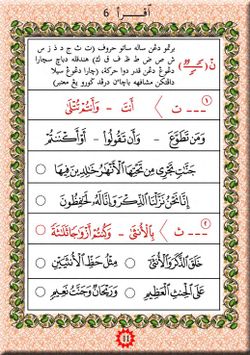 اقرأ 6
برتمو دڠن ساله ساتو حروف (ت ث ج د ذ ز س
ش ص ض ط ظ ف ق ك) هندقله دباچ سچارا
دڠوڠ دڠن قدر دوا حركة، (چارا دڠوڠ سيلا
دالقكن مشافهه باچاءن درقد ݢورو يڠ معتبر)
ن ْ
١ ن > --- ت أَنتَ - وَأَنتُمْ تُتْلَىٰ
وَمَن تَطَوَّعَ - وَأَن تَقُولُوا - أَوْ أَكْنَنتُمْ
جَنَّٰتٍ تَجْرِى مِن تَحْتِهَا ٱلْأَنْهَٰرُ خَٰلِدِينَ فِيهَا
إِنَّا نَحْنُ نَزَّلْنَا ٱلذِّكْرَ وَإِنَّا لَهُۥ لَحَٰفِظُونَ
٢ ن > --- ث بِٱلْأُنثَىٰ - وَكُنتُمْ أَزْوَٰجًا ثَلَٰثَةً
خَلَقَ ٱلذَّكَرَ وَٱلْأُنثَىٰ مِثْلُ حَظِّ ٱلْأُنثَيَيْنِ
عَلَى ٱلْحِنثِ ٱلْعَظِيمِ وَرَيْحَانٌ وَجَنَّتُ نَعِيمٍ
11